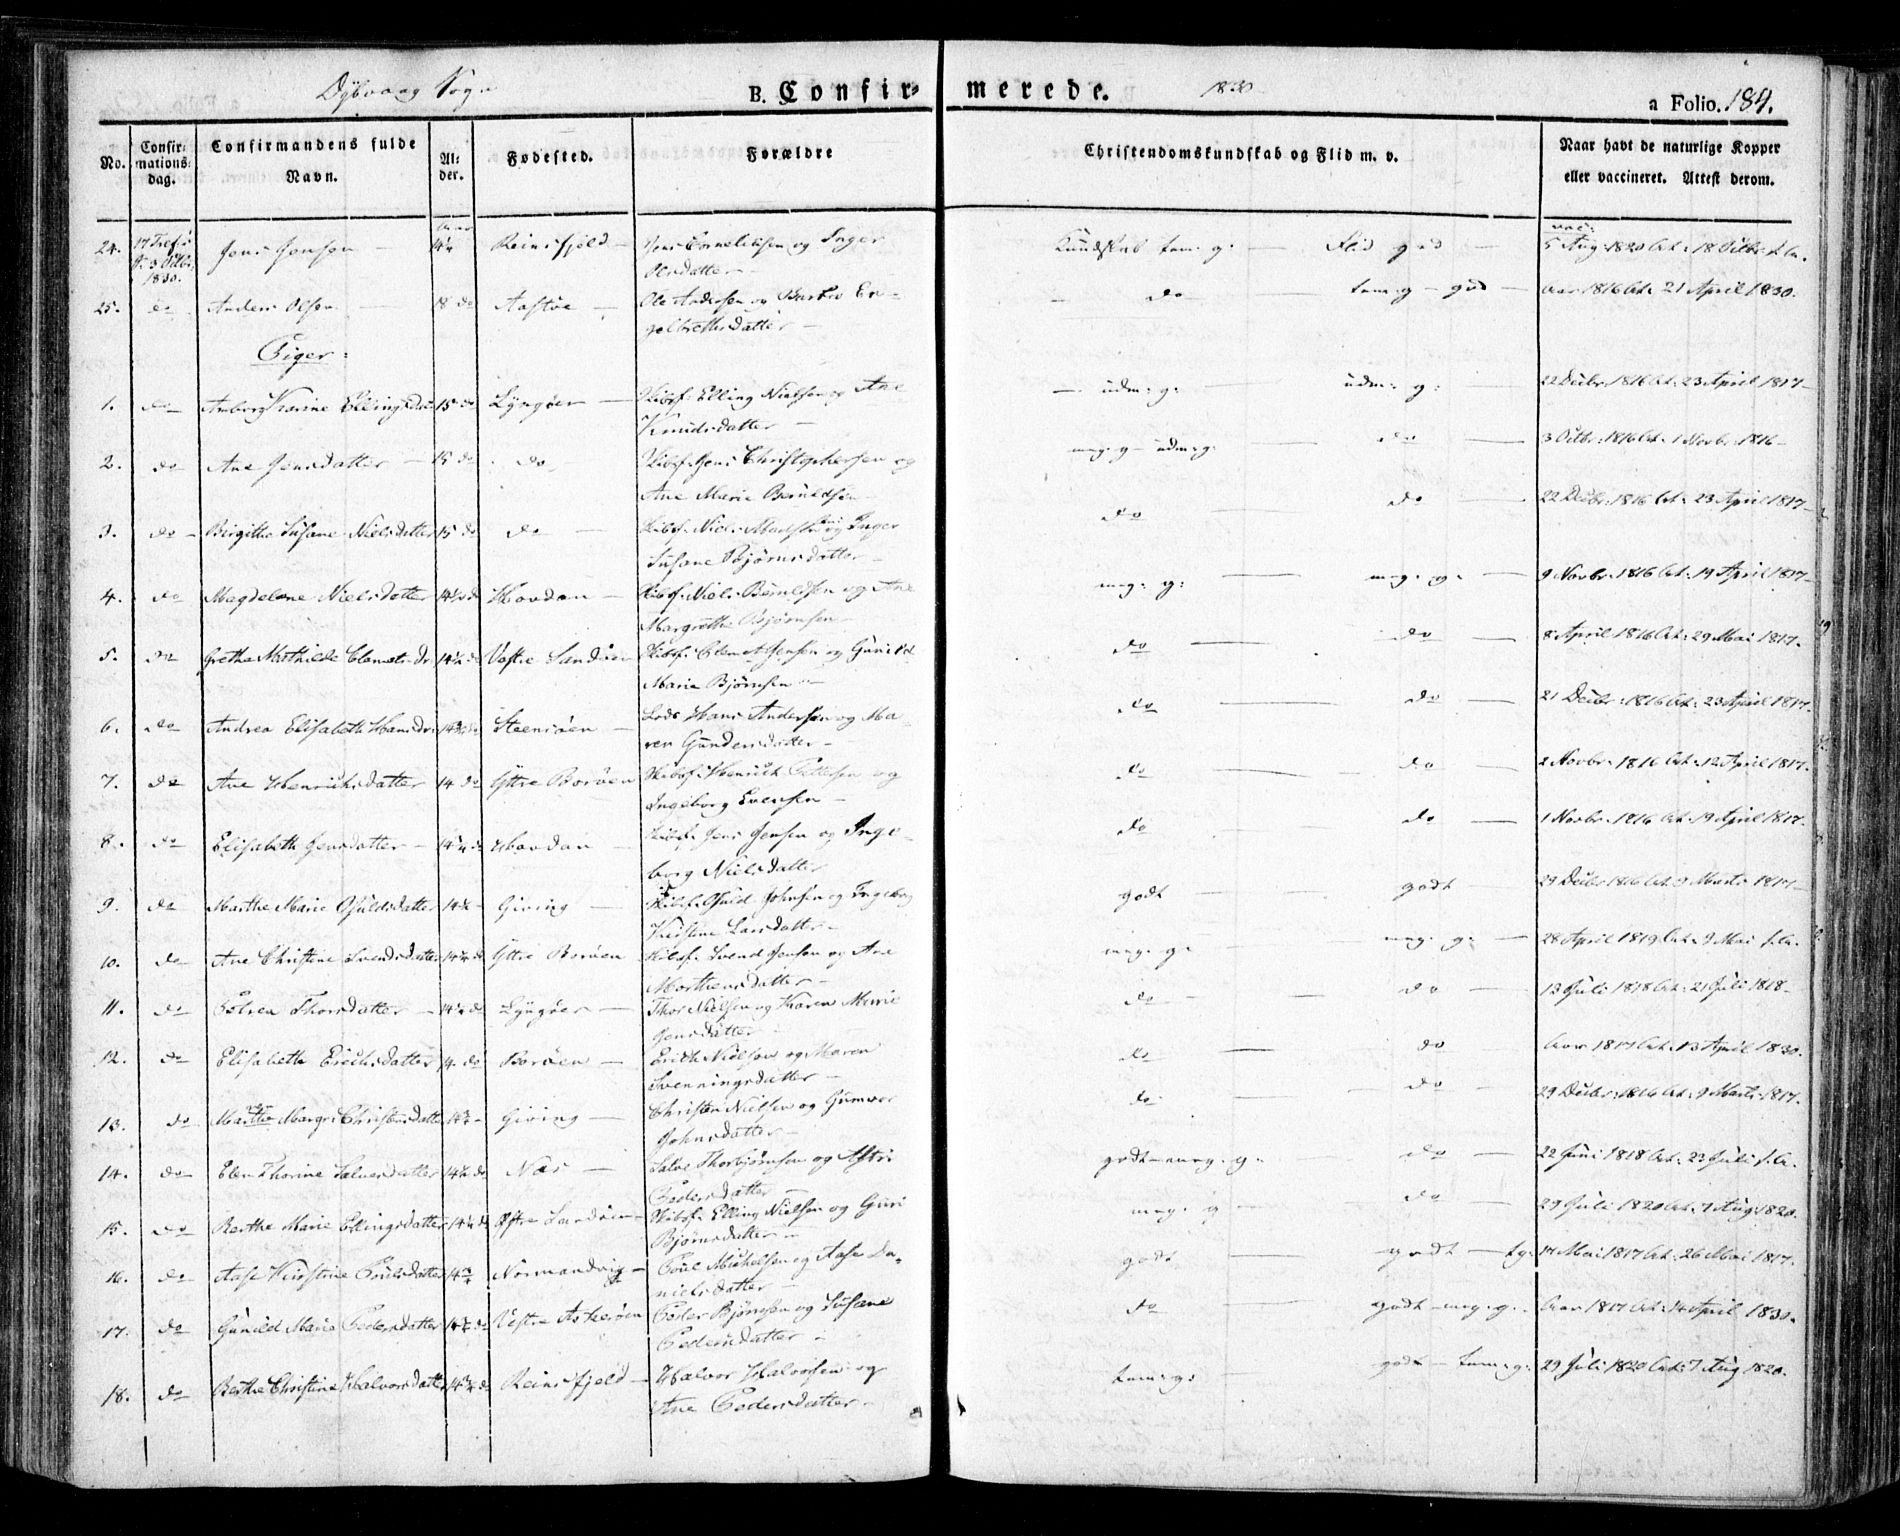 Dybvaag Sogn
B. Confir-
merede.
1830
a Folio. 184.
No.
Confir-
mations-
dag.
Confirmandens fulde
Navn.
Al-
der.
Fødested.
Forældre
Christendomskundskab og Flid m. v.
Naar havt de naturlige Kopper
eller vaccineret. Attest derom.
24. 1830. Jens Jensen Reinsfjeld Jens Corneliussen og Inger
Olsdatter
Kundskab tem: g: Flid god
vac:
5 Aug: 1820 Att: 18 Octbr: s. A.
25. do Anders Olsen 18 do Aastøe Ole Andersen og Barbro En-
gelbrethsdatter
do tem: g god Aar 1816 Att: 21 April 1830.
Piger:
1. do Anborg Karine Ellingsdr 15 do Lyngøer Skibsf: Elling Nielsen og Ane
Knudsdatter
udm: g: udm: g: 22 Decbr: 1816 Att: 23 April 1817
2. do Ane Jensdatter 15 do do Skibsf: Jens Christophersen og
Ane Marie Berntdsen
meg: g udm: g: do 3 Octbr: 1816 Att: 1 Novbr: 1816
3. do Birgithe Susane Nielsdatter 15 do do Skibsf: Niels Madsen og Inger
Susane Bjørnsdatter
do do 22 Decbr: 1816 Att: 23 April 1817
4. do Magdelene Nielsdatter 14½ do Hovdan Skibsf: Niels Berntdsen og Ane
Margrethe Bjørnsen
meg: g: meg: g: 9 Novbr: 1816 Att: 19 April 1817
5. do Grethe Mathilde Clemetsdr Vestre Sandøen Skibsf: Clemet Jensen og Gunild
Marie Bjørnsen
do do 8 April 1816 Att: 29 Mai 1817.
6. do Andrea Elisabeth Hansdr Steensøen Lods Hans Andersen og Ma-
ren Gundersdatter
do do 21 Decbr: 1816 Att: 23 April 1817.
7. do Ane Henrichsdatter 14 do Yttre Borøen Skibsf: Henrich Pettersen og
Ingeborg Evensen
do do 2 Novbr: 1816 Att: 12 April 1817.
8. do Elisabeth Jensdatter Hovdan Skibsf: Jens Jensen og Inge-
borg Nielsdatter
do do 1 Novbr: 1816 Att: 19 April 1817
9. do Marthe Marie Ofuldsdatter Giving Skibsf: Ofuld Johnsen og Ingeborg
Kirstine Larsdatter
godt godt 29 Decbr 1816 Att: 9 Marts 1817
10. do Ane Christine Svendsdatter Yttre Borøen Skibsf: Svend Jensen og Ane
Morthensdatter
meg: g: meg: g: 28 April 1819 Att: 9 Mai s. A.
11. do Petrea Thorsdatter Lyngøer Thor Nielsen og Karen Marie
Jensdatter
do do 13 Juli 1818 Att: 21 Juli 1818
12. do Elisabeth Erichsdatter 14 do Borøen Erich Nielsen og Maren
Svenningsdatter
do do Aar 1817 Att: 13 April 1830.
13. do Marthe Margr: Christensdatter Giving Christen Nielsen og Gunvor
Johnsdatter
do do 29 Decbr: 1816 Att: 9 Marts 1817.
14. do Elen Thorine Salvesdatter Næs Salve Thorbjørnsen og Astri
Pedersdatter
godt meg: g: do 22 Juni 1818 Att: 23 Juli s. A.
15. do Berthe Marie Ellingsdatter Østre Sandøen Skibsf: Elling Nielsen og Guri
Bjørnsdatter
meg: g do 29 Juli 1820 Att: 7 Aug: 1820.
16. do Aase Kirstine Poulsdatter Normandvig Poul Michelsen og Aase Da-
nielsdatter
godt godt tg: 17 Mai 1817 Att: 26 Mai 1817.
17. do Gunild Marie Pedersdatter Vestre Askerøen Peder Bjørnsen og Susane
Pedersdatter
do godt meg: g: Aar 1817 Att: 14 April 1830.
18. do Berthe Christine Halvorsdatter Reinsfjeld Halvor Halvorsen og
Ane Pedersdatter
tem: g: godt tem: g: 29 Juli 1820 Att: 7 Aug 1820.